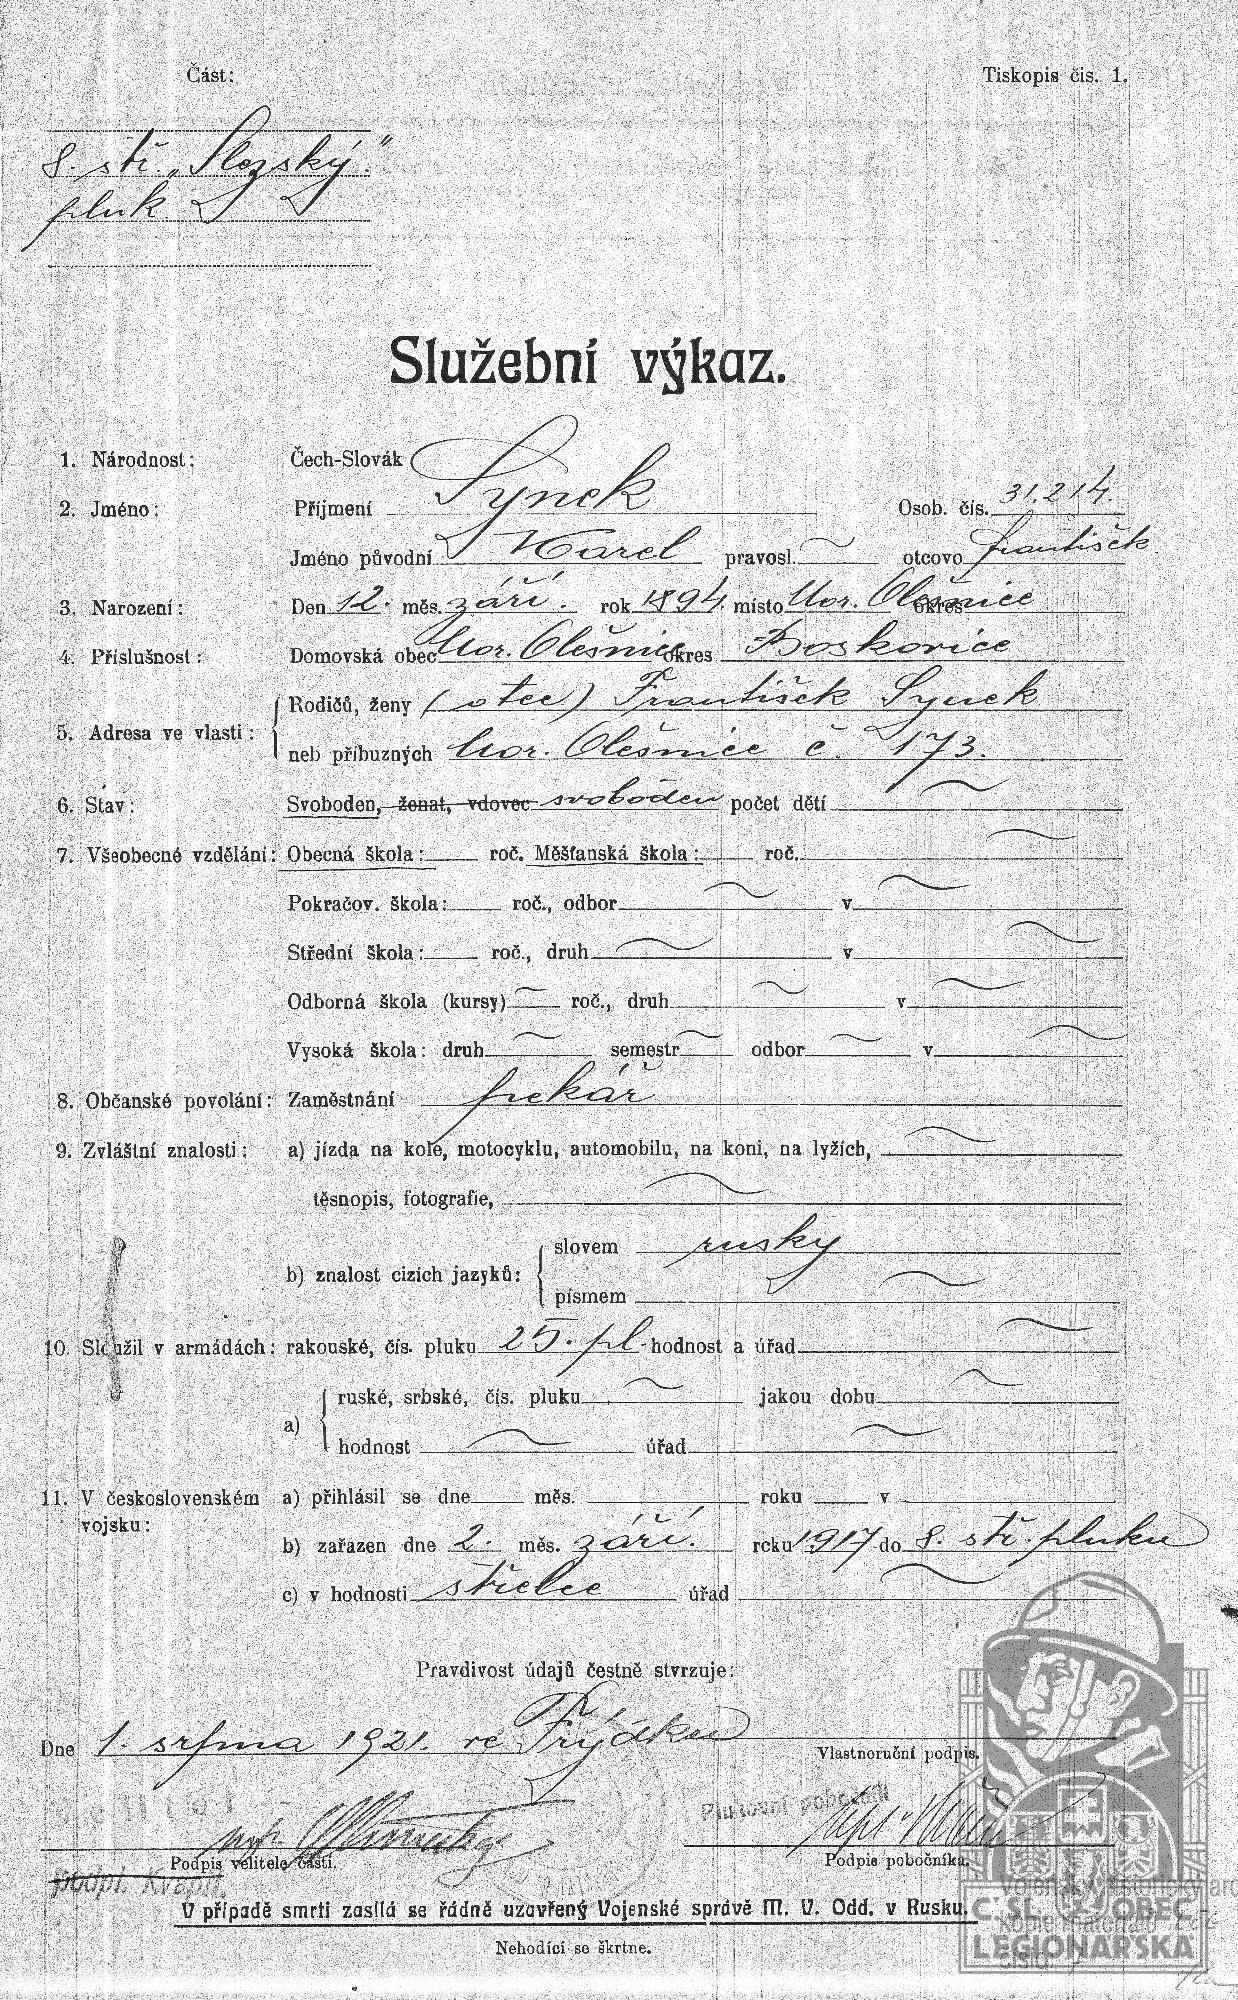 Část:
Tiskopis čis. 1.
8. stř. „Slezský"
pluk
Služební výkaz.
1. Národnost: Čech-Slovák
2. Jméno: Příjmení Synek Osob. čís. 31.214.
Jméno původní Karel pravosl. otcovo František
3. Narození: Den 12. měs. září. rok 1894. místo Mor. Olešnice okres
4. Příslušnost: Domovská obec Mor. Olešnice okres Boskovice
5. Adresa ve vlasti: Rodičů, ženy (otec) František Synek
neb příbuzných Mor. Olešnice č. 173.
6. Stav: Svoboden, ženat, vdovec svoboden počet dětí
7. Všeobecné vzdělání: Obecná škola: roč. Měšťanská škola: roč.
Pokračov. škola: roč., odbor v
Střední škola: roč., druh v
Odborná škola (kursy) roč., druh v
Vysoká škola: druh semestr odbor v
8. Občanské povolání: Zaměstnání pekář
9. Zvláštní znalosti: a) jízda na kole, motocyklu, automobilu, na koni, na lyžích,
těsnopis, fotografie,
slovem rusky
b) znalost cizích jazyků:
písmem
10. Sloužil v armádách: rakouské, čís. pluku 25. pl. hodnost a úřad
ruské, srbské, čís. pluku jakou dobu
a)
hodnost úřad
11. V československém a) přihlásil se dne měs. roku v
vojsku:
b) zařazen dne 2. měs. září. roku 1917 do 8. stř. pluku
c) v hodnosti střelce úřad
Pravdivost údajů čestně stvrzuje:
Dne 1. srpna 1921. ve Frýdku
Vlastnoruční podpis.
Plukovní pobočník
Podpis velitele části.
Podpis pobočníka.
podpl. Kvapil.
V případě smrti zasílá se řádně uzavřený Vojenské správě M. V. Odd. v Rusku.
Nehodící se škrtne.
Č.SL. OBEC
LEGIONÁŘSKÁ
Vojenský historický arc
kopie materiálu
číslo: